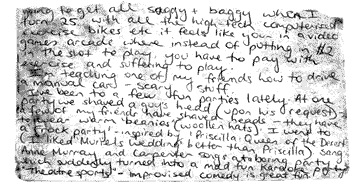 going to get all saggy & baggy when I
turn 25. With all the high-tech computerised
exercise bikes etc it feels like your in a video
games arcade where instead of putting a $2
in the slot to play you have to pay with
exercise and suffering to play.
I'm teaching one of my friends how to drive
a manual car. Scary stuff.
I've been to a few fun parties lately. At one
party we shaved a guy's head (upon his request)
In fact my friends have shaved heads - they
to wear warm 'beanies' (woollen hats). I went to
a 'frock party' - inspired by 'Priscilla: Queen of the Desert'
I liked Muriel's Wedding better than Priscilla) sang
Anne Murray and Carpenter songs at a boring party
which suddenly turned into a mad fun Karaoke party
'Theatre sports' - improvised comedy is great fun